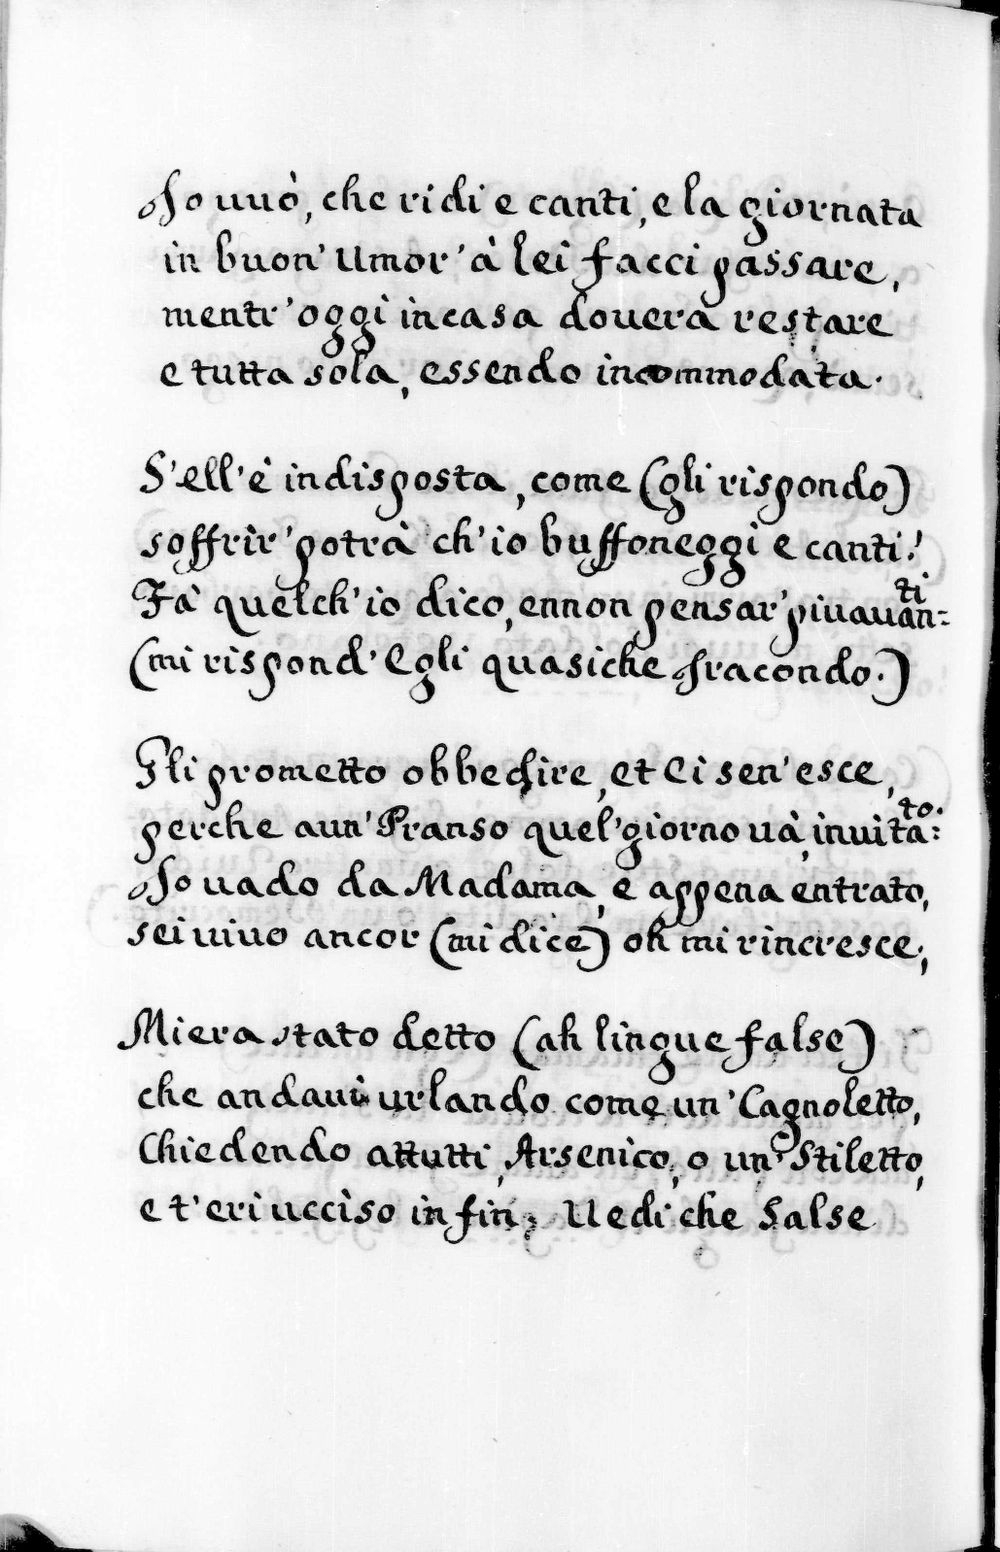 Io uuò, che ridi e canti, e la giornata
in buon' Umor' à lei facci passare,
mentr' oggi in casa douerà restare
e tutta sola, essendo incommodata.
S'ell' è indisposta, come (gli rispondo)
soffrir' potrà ch'io buffoneggi e canti!
Fà quelch' io dico, ennon pensar' piu auanti
(mi rispond' Egli quasiche Iracondo.)
Gli prometto obbedire, et Ei sen' esce,
perche a un' Pranso quel' giorno uà, inuitato:
Io uado da Madama, e appena entrato,
sei uiuo ancor (mi dice) oh mi rincresce;
Mi era stato detto (ah lingue false)
che andaui urlando come un' Cagnoletto,
Chiedendo attutti, Arsenico, o un' Stiletto,
e t'eri ucciso in fin; Uedi che Salse